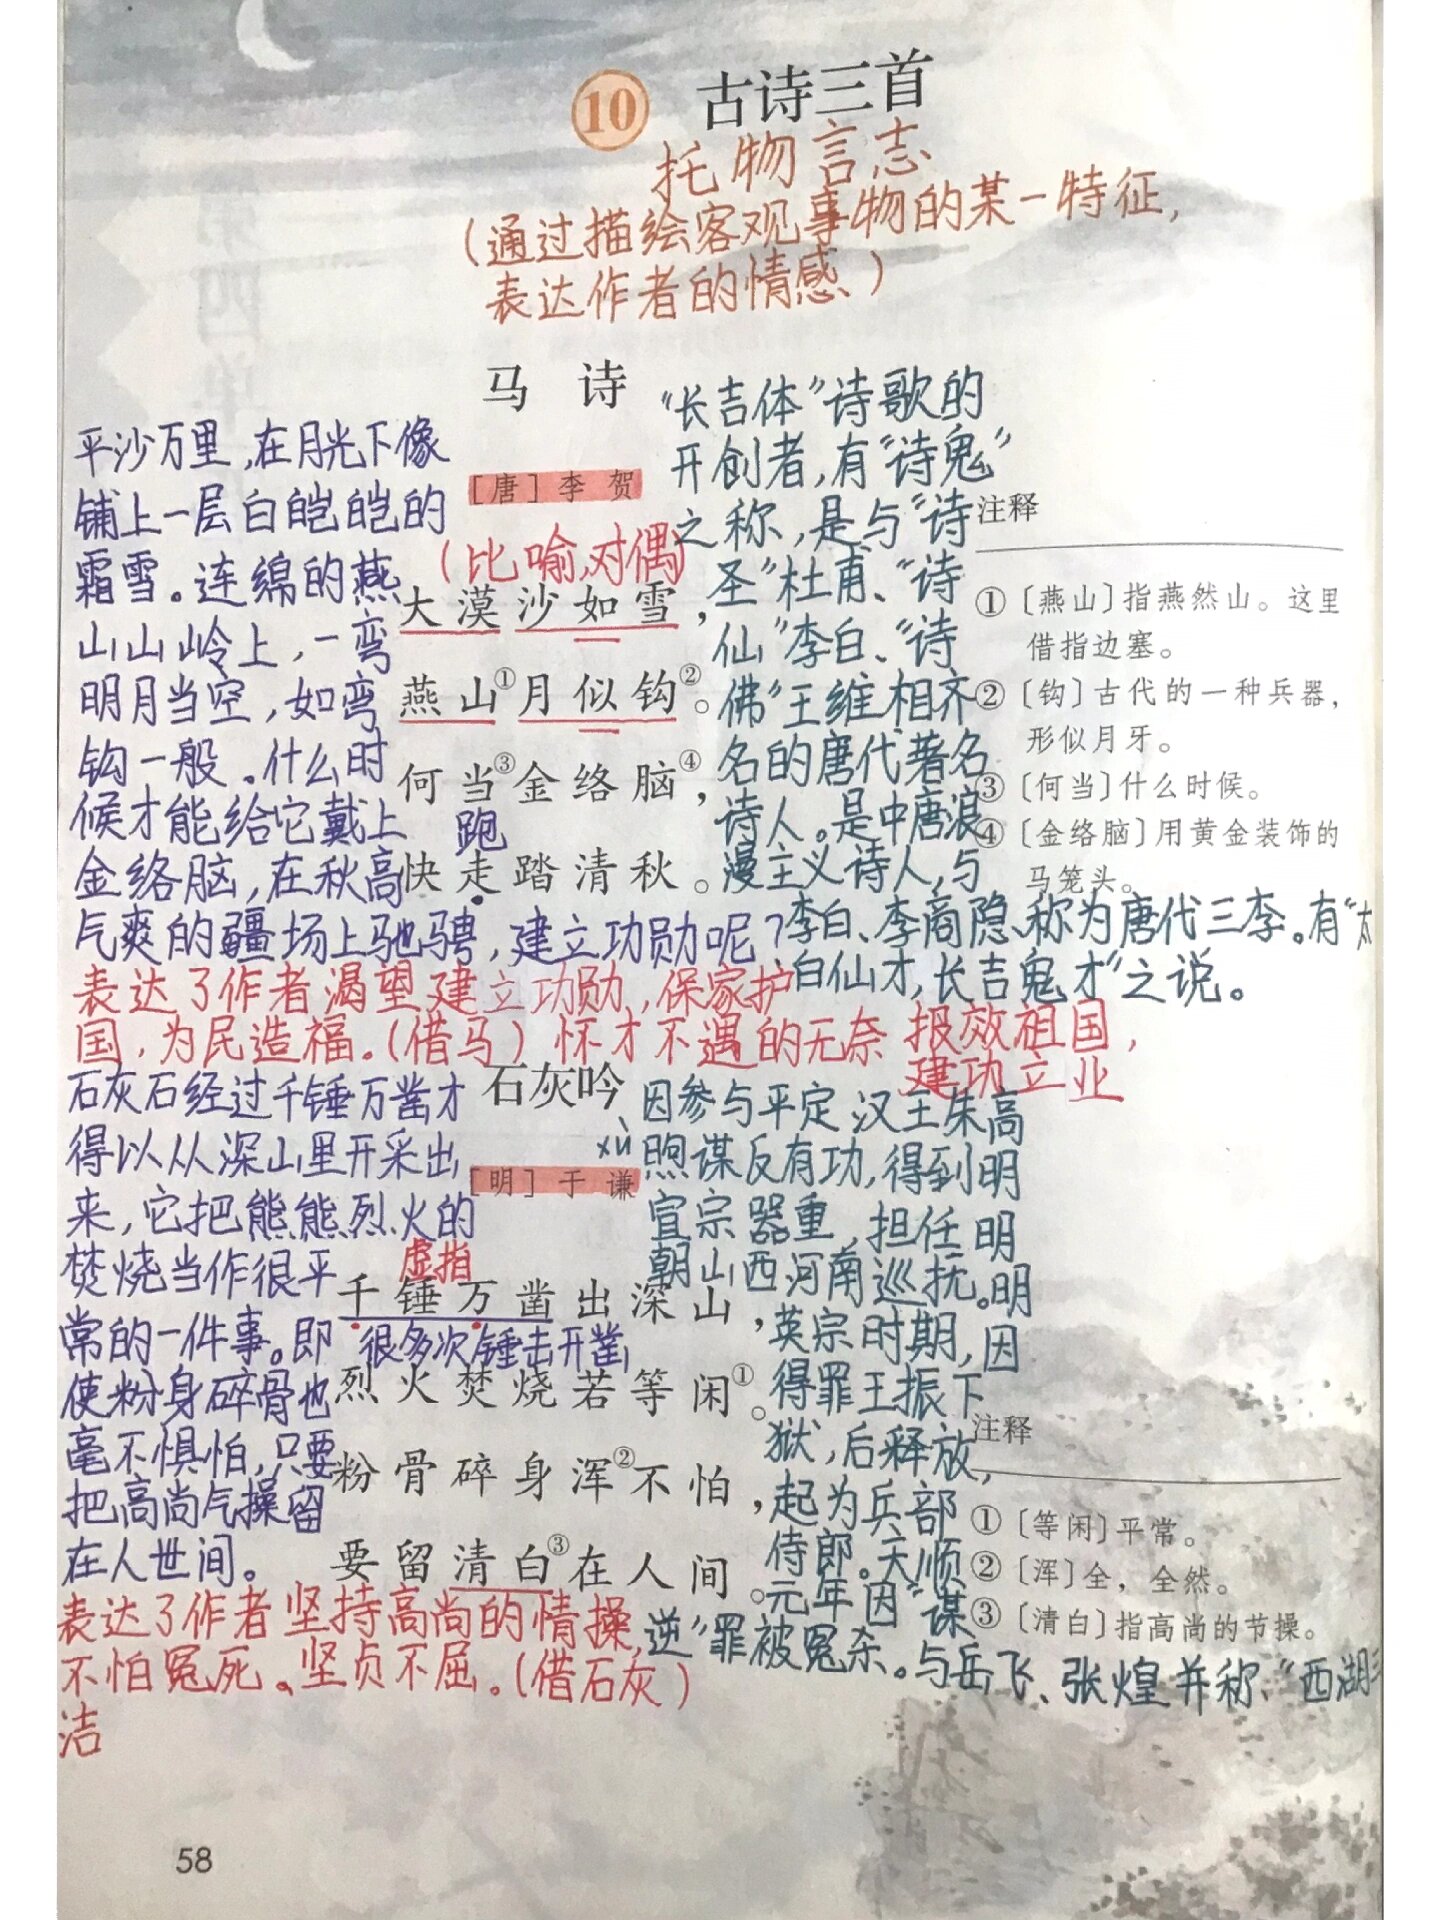 10 古诗三首
托物言志
(通过描绘客观事物的某一特征,
表达作者的情感)
马 诗
[唐] 李 贺
(比喻,对偶)
大漠沙如雪,
燕山①月似钩②。
何当③金络脑④,
跑
快走踏清秋。
平沙万里,在月光下像
铺上一层白皑皑的
霜雪。连绵的燕
山山岭上,一弯
明月当空,如弯
钩一般。什么时
候才能给它戴上
金络脑,在秋高
气爽的疆场上驰骋,建立功勋呢?
表达了作者渴望建立功勋,保家护
国,为民造福。(借马)怀才不遇的无奈 报效祖国,
建功立业
“长吉体”诗歌的
开创者,有“诗鬼”
之称,是与“诗
圣”杜甫、“诗
仙”李白、“诗
佛”王维相齐
名的唐代著名
诗人。是中唐浪
漫主义诗人,与
李白、李商隐、称为唐代三李。有“太
白仙才,长吉鬼才”之说。
注释
①〔燕山〕指燕然山。这里
借指边塞。
②〔钩〕古代的一种兵器,
形似月牙。
③〔何当〕什么时候。
④〔金络脑〕用黄金装饰的
马笼头。
石灰吟
[明] 于 谦
虚指
千锤万凿出深山,
很多次锤击开凿
烈火焚烧若等闲①。
粉骨碎身浑②不怕,
要留清白③在人间。
石灰石经过千锤万凿才
得以从深山里开采出
来,它把熊熊烈火的
焚烧当作很平
常的一件事。即
使粉身碎骨也
毫不惧怕,只要
把高尚气操留
在人世间。
表达了作者坚持高尚的情操,
不怕冤死、坚贞不屈。(借石灰)
洁
因参与平定汉王朱高
xù
煦谋反有功,得到明
宣宗器重,担任明
朝山西河南巡抚。明
英宗时期,因
得罪王振下
狱,后释放,
起为兵部
侍郎。天顺
元年因“谋
逆”罪被冤杀。与岳飞、张煌并称“西湖
注释
①〔等闲〕平常。
②〔浑〕全,全然。
③〔清白〕指高尚的节操。
58